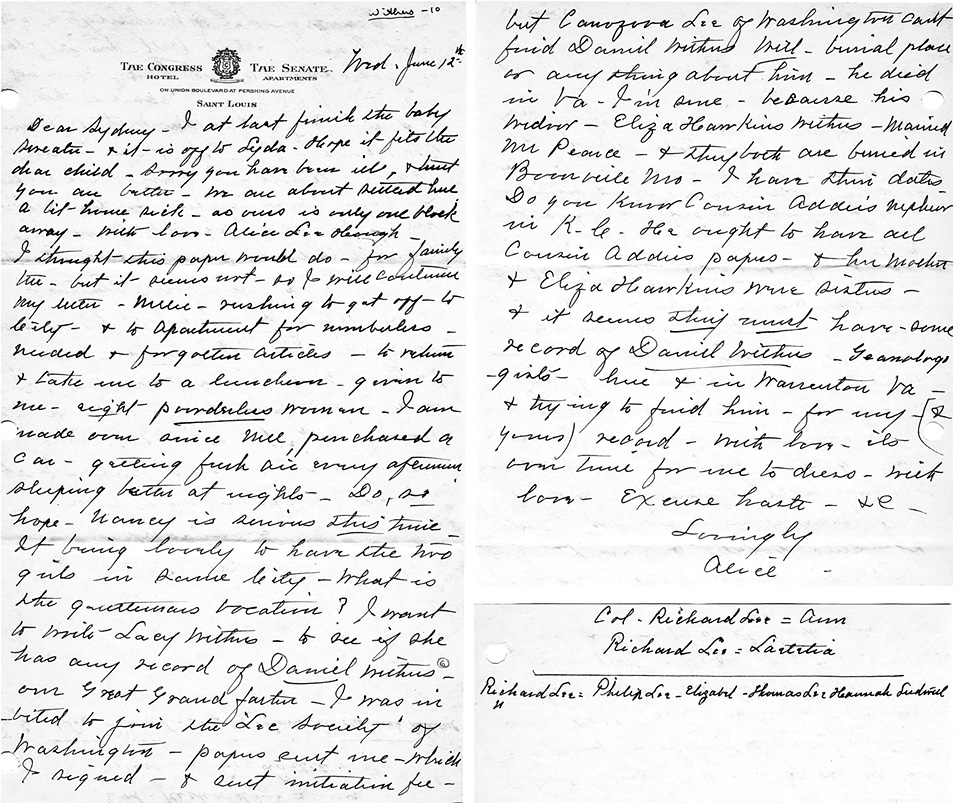 Withers - 10
THE CONGRESS THE SENATE
HOTEL APARTMENTS
ON UNION BOULEVARD AT PERSHING AVENUE
SAINT LOUIS
Wed. June 12th
Dear Sydney - I at last finish the baby
sweater - & it is off to Lyda - Hope it fits the
dear child - Sorry you have been ill, & trust
you are better - We are about settled here
a bit home sick - as ours is only one block
away - With love - Alice Lee Hough -
I thought this paper would do - for family
tree - but it seems not - so I will continue
my letter - rushing to get off - to
City - & to Apartment for numberless -
needed & forgotten articles - to return
& take me to a luncheon - given to
me - eight powderless woman - I am
made over since purchased a
car - getting fresh air every afternoon
sleeping better at nights - Do, so
hope - Nancy is serious this time
It being lovely to have the two
girls in same City - What is
the gentlemans vocation? I want
to write Lacy Withers - to see if she
has any record of Daniel Withers -
our Great Grand father - I was in
vited to join the "Lee Society" of
Washington - papers sent me - which
I signed - & sent initiation fee -
but Cazenove Lee of Washington cant
find Daniel Withers Will - burial place
or any thing about him - he died
in Va - I'm sure - because his
Widow - Eliza Hawkins Withers - Married
Mr Pearce - & they both are buried in
Boonville Mo - I have their dates
Do you know Cousin Addies nephew
in K.C. He ought to have all
Cousin Addies papers - & her Mother
& Eliza Hawkins were sisters -
& it seems they must have some
record of Daniel Withers - Geanology
girls - here & in Warrenton Va -
& trying to find him - for my - (&
yours) record - With love - its
over time for me to dress - with
love - Excuse haste - &c -
Lovingly
Alice -
Col - Richard Lee = Ann
Richard Lee = Laetitia
Richard Lee = Philip Lee - Elizabet - Thomas Lee Hannah Ludwell
"